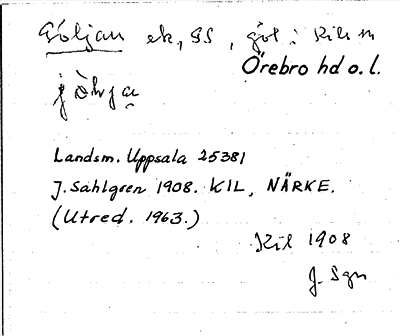 Göljan ek, GS, göl i Kils sn
Örebro hd o. l.
jòḷja
Landsm. Uppsala 25381
J. Sahlgren 1908. KIL, NÄRKE.
(Utred. 1963.)
Kil 1908
J. Sgn